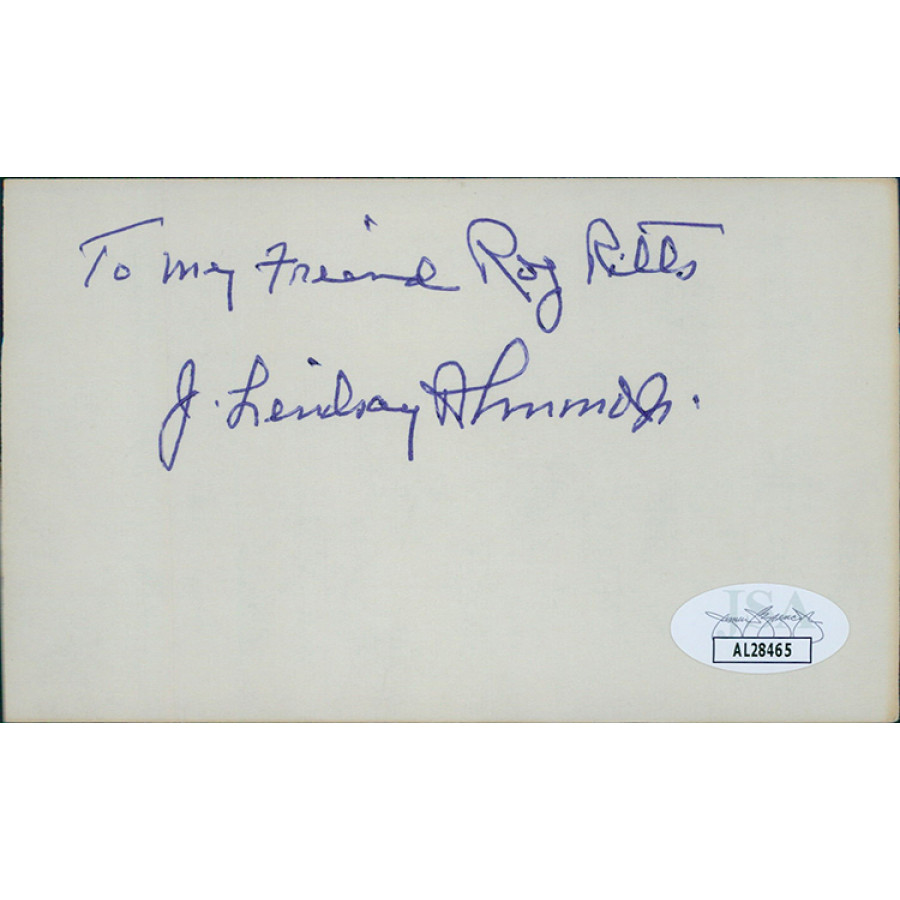 To my Friend Roy Ritts
J. Lindsay Almond Jr.
JSA
AL28465